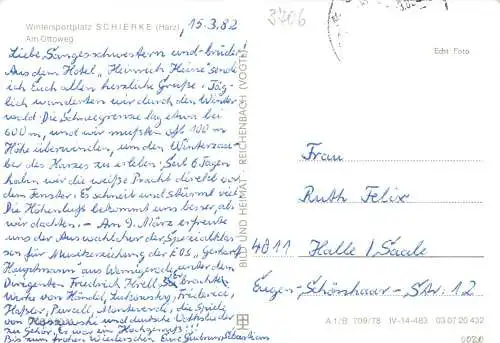 Wintersportplatz SCHIERKE (Harz)
Am Ottoweg
15.3.82
Liebe Sangesschwestern und -brüder
Aus dem Hotel „Heinrich Heine" sende
ich Euch allen herzliche Grüße. Täg-
lich wanderten wir durch den Winter-
wald. Die Schneegrenze lag etwa bei
600 m, und wir mußten oft 100 m
Höhe überwinden, um den Winterzau-
ber des Harzes zu erleben. Seit 6 Tagen
haben wir die weiße Pracht direkt vor
dem Fenster. Es schneit und stürmt viel.
Die Höhenluft bekommt uns besser, als
wir dachten. - Am 9. März erfreute
uns der Auswahlchor der Spezialklas-
sen für Musikerziehung der EOS „Gerhart
Hauptmann" aus Wernigerode unter dem
Dirigenten Friedrich Krell. Sie brachten
Werke von Händel,
Haßler, Purcell, Monteverdi, die Spiele
von und deutsche Volkslieder
zu Gehör. Es war ein Hochgenuß!!!
Bis zum frohen Wiedersehen Eure
BILD UND HEIMAT REICHENBACH (VOGTL)
3206
Echt Foto
Frau
Ruth Felix
4011 Halle / Saale
Eugen-Schönhaar-Str. 12
A 1/B 709/78 IV-14-483 03 07 20 432